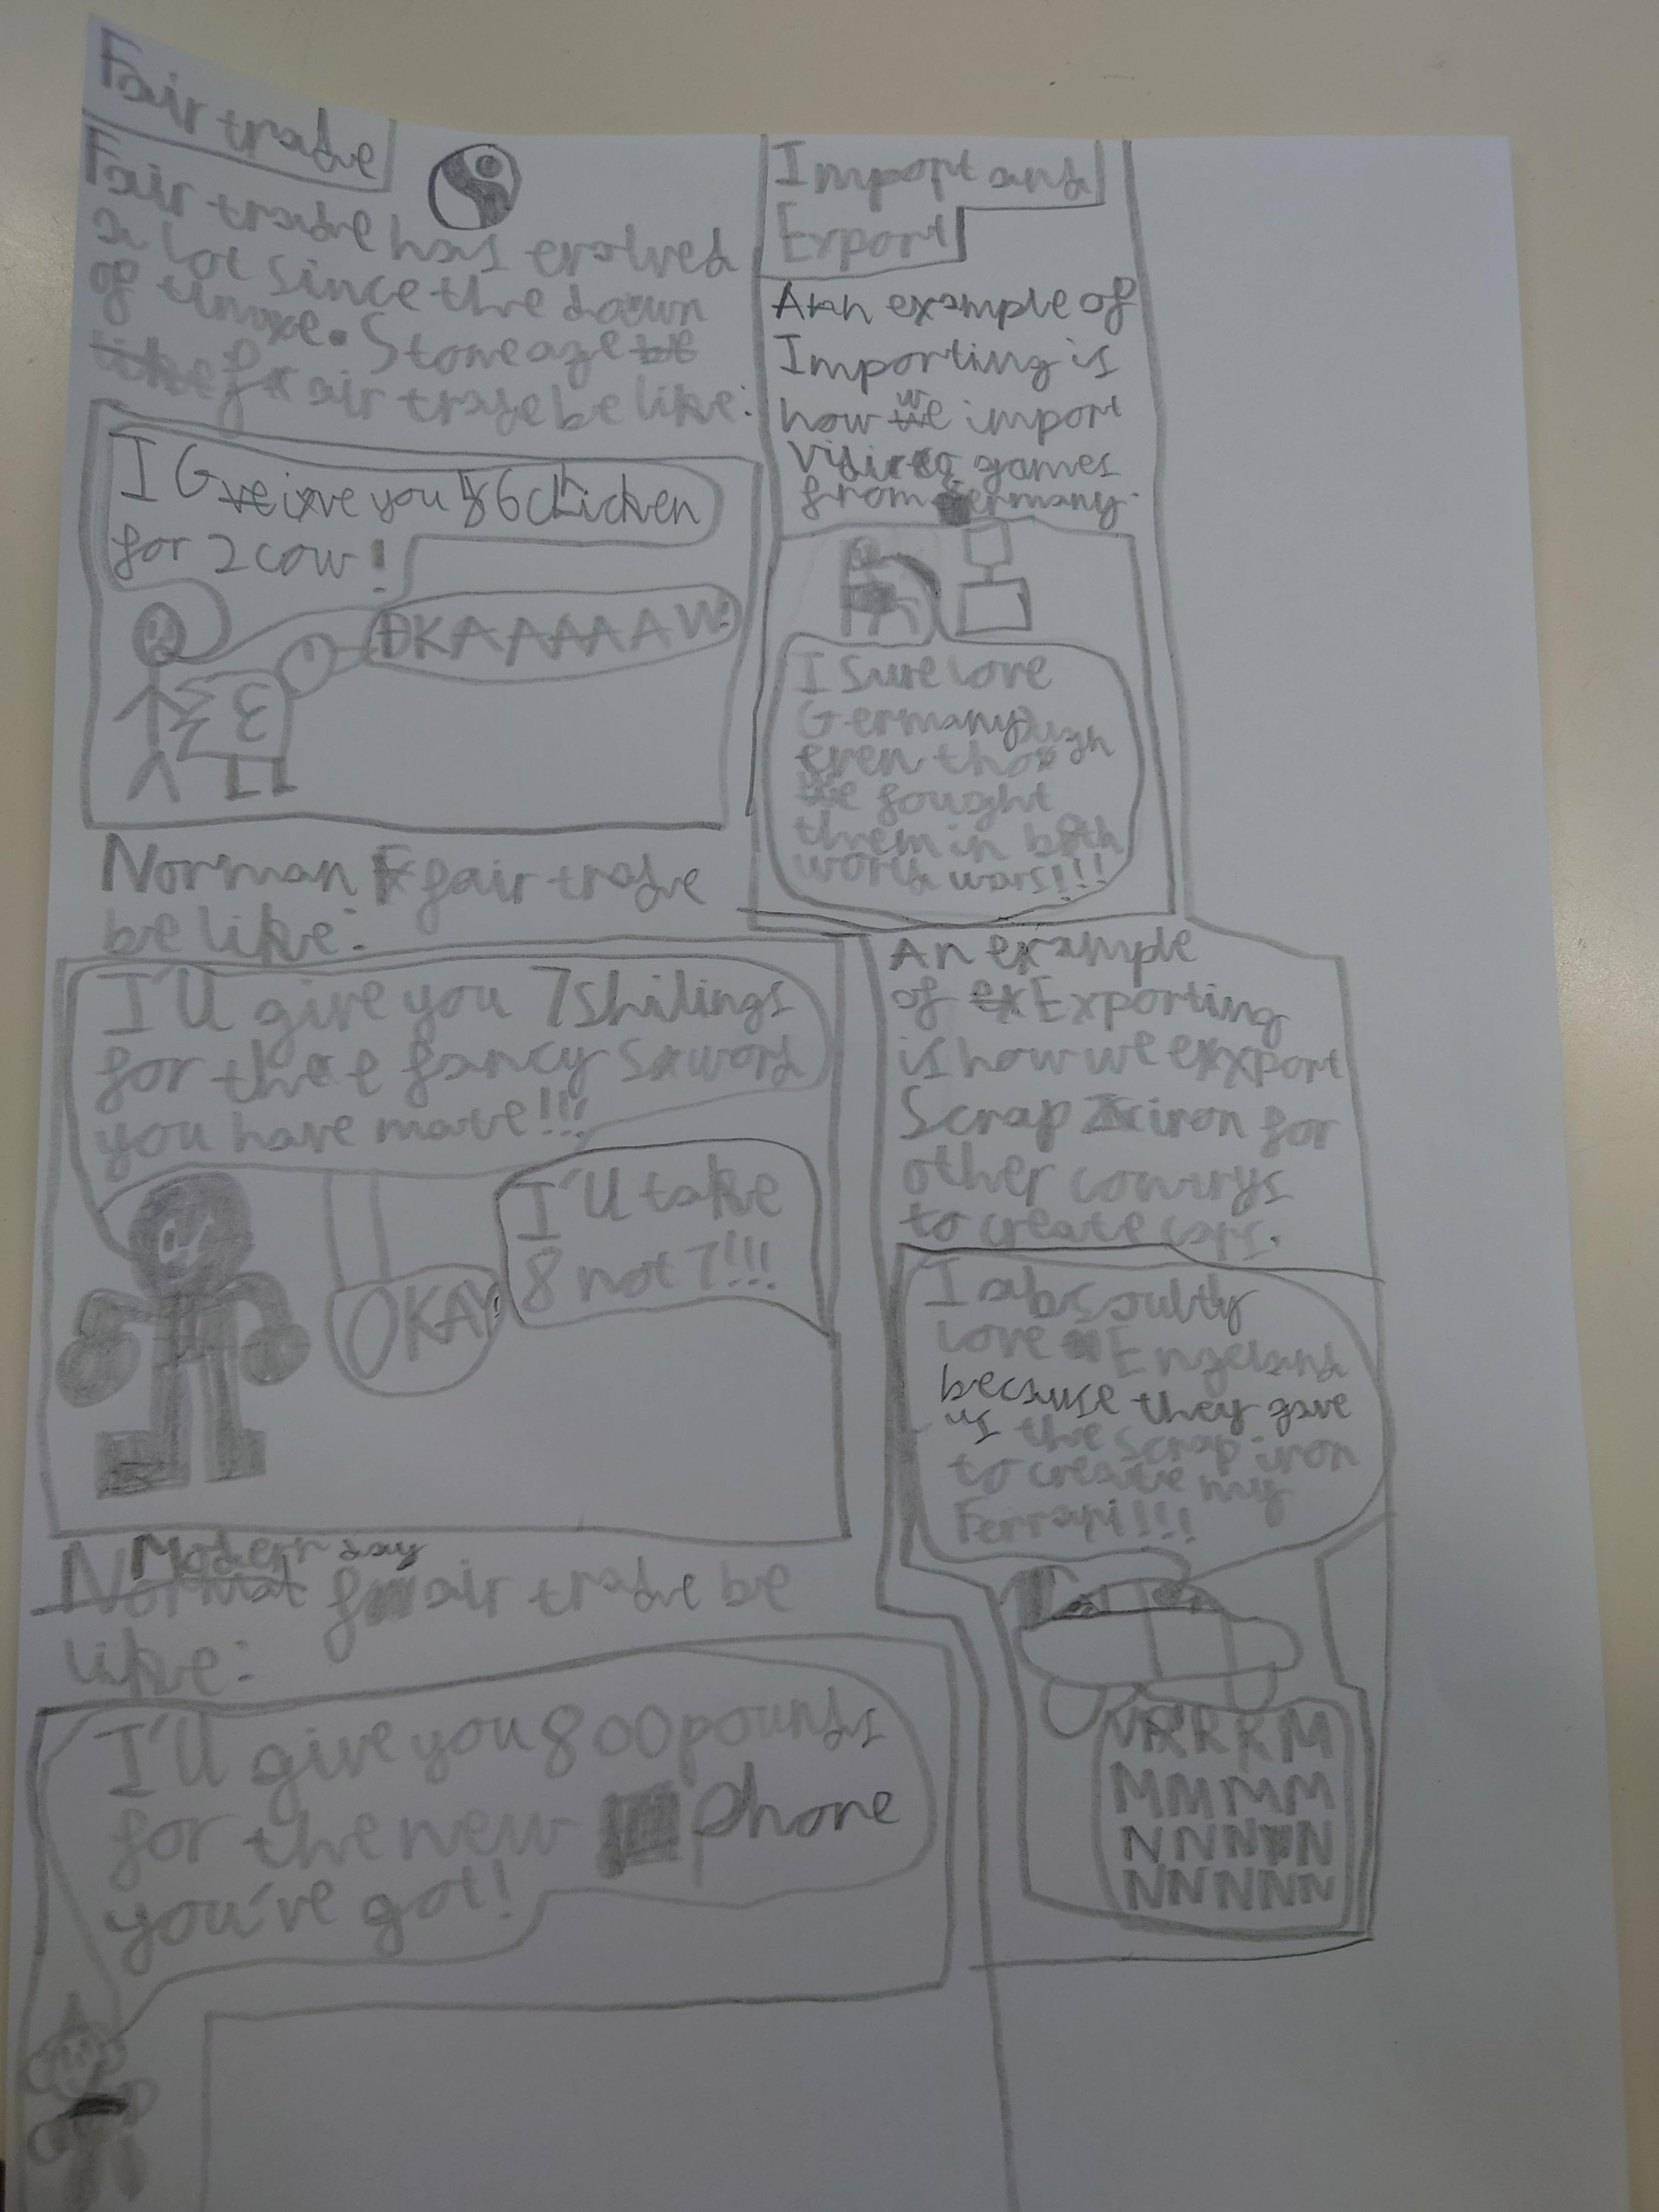 Fair trade
Fair trade has evolved
a lot since the dawn
of time. Stone age be
like fair trade be like:
I Give you 56 chicken
for 2 cow!
OKAAAAAW!
Norman fair trade
be like:
I'll give you 7 shilings
for the fancy sword
you have mate!!!
I'll take
8 not 7!!!
OKAY!
Modern day
Normal fair trade be
like:
I'll give you 800 pounds
for the new Phone
you've got!
Import and
Export
An example of
Importing is
how we import
video games
from Germany.
I sure love
Germany
even though
we fought
them in both
world wars!!!
An example
of Exporting
is how we export
Scrap iron for
other contrys
to create cars.
I absoulty
love Engeland
because they gave
us the scrap iron
to create my
Ferrari!!!
VRRRM
MMMM
NNNNN
NNNNN